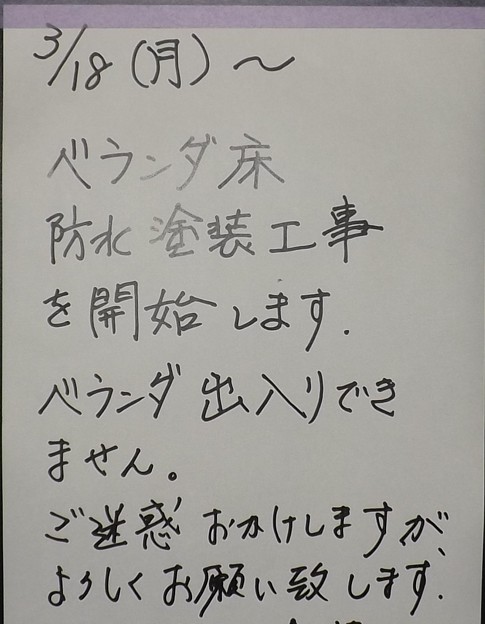 3/18(月)～
ベランダ床
防水塗装工事
を開始します.
ベランダ出入りでき
ません。
ご迷惑おかけしますが、
よろしくお願い致します.